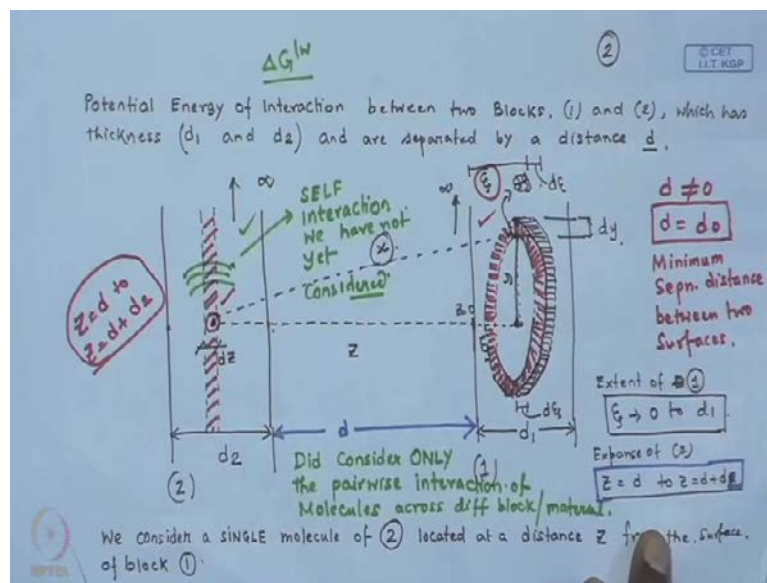 ΔG^LW
②
© CET
I.I.T. KGP
Potential Energy of Interaction between two Blocks, (1) and (2), which has
thickness (d1 and d2) and are separated by a distance d.
∞
SELF
Interaction
we have not
yet
Considered
∞
ξ
dξ
dy
d ≠ 0
d = d0
Minimum
Sepn. distance
between two
Surfaces.
Z = d to
Z = d+d2
x
dZ
Z
dξ
Extent of ①
ξ → 0 to d1
d2
d
d1
Expanse of (2)
Z = d to Z = d+d2
(2)
Did Consider ONLY
(1)
the pairwise interaction of
Molecules across diff block/material.
We consider a SINGLE molecule of ② located at a distance Z from the surface
of block ①.
NPTEL